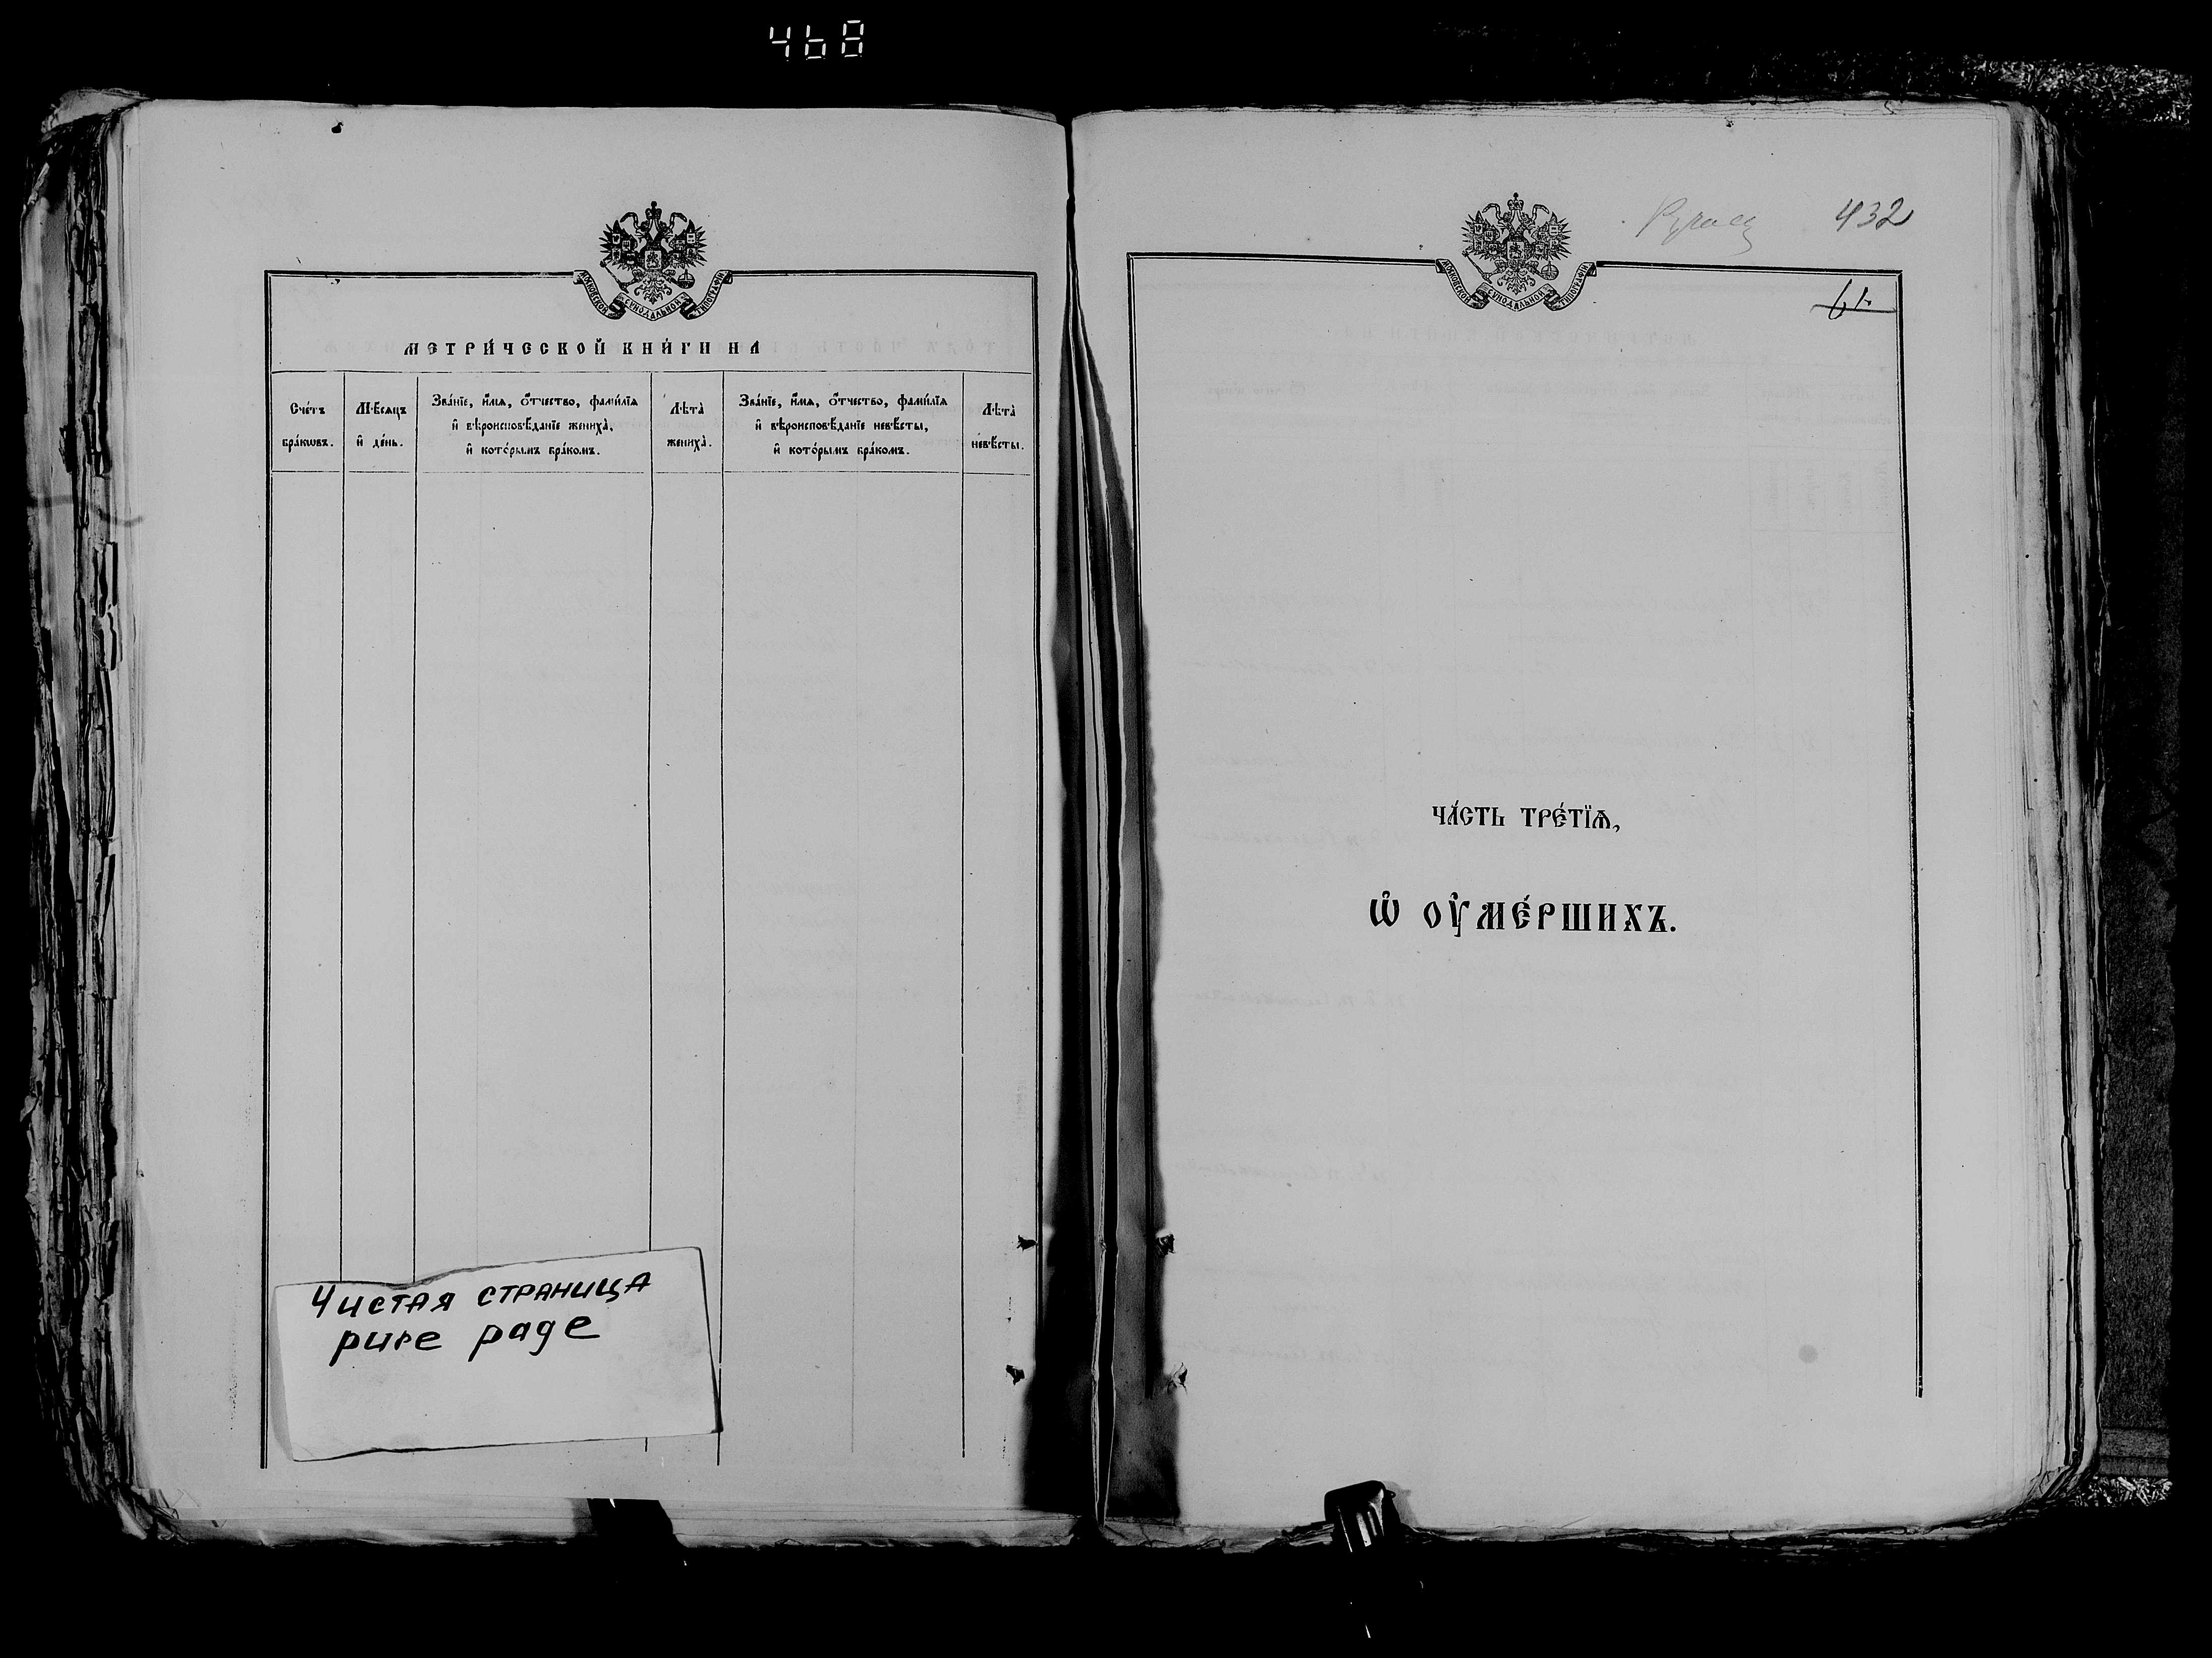 468
МОСКОВСКОЙ СУНОДАЛЬНОЙ ТИПОГРАФІИ
МЕТРИ́ЧЕСКОЙ КНИ́ГИ НА
Сче́тъ бра́кѡвъ.
Мѣсяцъ и҆ де́нь.
Зва́нїе, и҆́мя, ѻ҆́тчество, фами́лїя
и҆ вѣроисповѣ́данїе жениха̀,
и҆ кото́рымъ бра́комъ.
Лѣта̀ жениха̀.
Зва́нїе, и҆́мя, ѻ҆́тчество, фами́лїя
и҆ вѣроисповѣ́данїе невѣ́сты,
и҆ кото́рымъ бра́комъ.
Лѣта̀ невѣ́сты.
Чистая страница
pure page
432
МОСКОВСКОЙ СУНОДАЛЬНОЙ ТИПОГРАФІИ
ЧА́СТЬ ТРЕ́ТЇѦ,
Ѡ҆ ОУ҆МЕ́РШИХЪ.